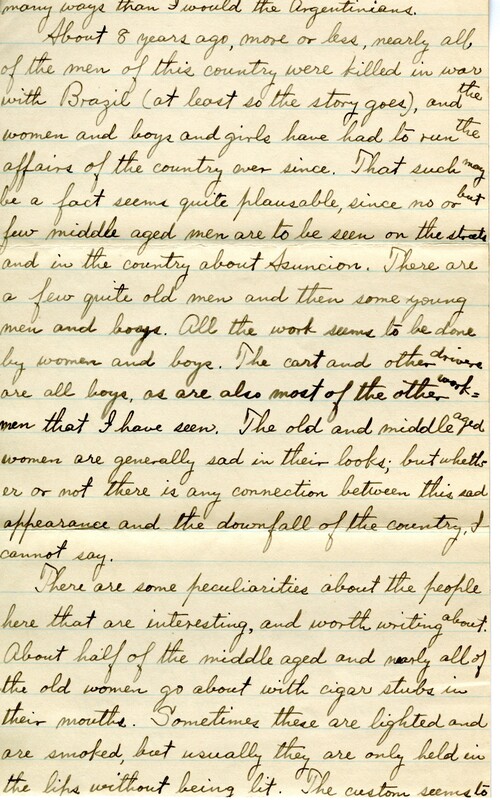 many ways than I would the Argentinians.
About 8 years ago, more or less, nearly all
of the men of this country were killed in war
with Brazil (at least so the story goes), and the
women and boys and girls have had to run the
affairs of the country ever since. That such may
be a fact seems quite plausable, since no or but
few middle aged men are to be seen on the streets
and in the country about Asuncion. There are
a few quite old men and then some young
men and boys. All the work seems to be done
by women and boys. The cart and other drivers
are all boys, as are also most of the other work=
men that I have seen. The old and middle aged
women are generally sad in their looks; but wheth
er or not there is any connection between this sad
appearance and the downfall of the country, I
cannot say.
There are some peculiarities about the people
here that are interesting, and worth writing about.
About half of the middle aged and nearly all of
the old women go about with cigar stubs in
their mouths. Sometimes these are lighted and
are smoked, but usually they are only held in
the lips without being lit. The custom seems to